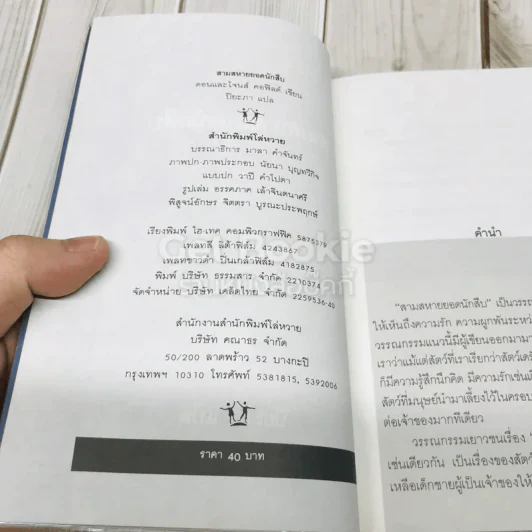 สามสหายยอดนักสืบ
ดอนและโจนส์ คอฟิลด์ เขียน
ปิยะภา แปล
สำนักพิมพ์โล่หวาย
บรรณาธิการ มาลา คำจันทร์
ภาพปก-ภาพประกอบ นัยนา บุญทวีกิจ
แบบปก วาปี คำไปตา
รูปเล่ม อรรคภาค เล้าจินตนาศรี
พิสูจน์อักษร จิตตรา บูรณะประพฤกษ์
เรียงพิมพ์ ไฮ-เทค คอมพิวกราฟฟิค 5875379
เพลทสี สีดำฟิล์ม 4243867
เพลทขาวดำ ปิ่นเกล้าฟิล์ม 4182875
พิมพ์ บริษัท ธรรมสาร จำกัด 2210374
จัดจำหน่าย บริษัท เคล็ดไทย จำกัด 2259536-40
สำนักงานสำนักพิมพ์โล่หวาย
บริษัท คณาธร จำกัด
50/200 ลาดพร้าว 52 บางกะปิ
กรุงเทพฯ 10310 โทรศัพท์ 5381815, 5392006
ราคา 40 บาท
คำนำ
"สามสหายยอดนักสืบ" เป็นวรรณ
ให้เห็นถึงความรัก ความผูกพันระหว่
วรรณกรรมแนวนี้มีผู้เขียนออกมามา
เราว่าแม้แต่สัตว์ที่เราเรียกว่าสัตว์เดรั
ก็มีความรู้สึกนึกคิด มีความรักเช่นเดี
สัตว์ที่มนุษย์นำมาเลี้ยงไว้ในครอบ
ต่อเจ้าของมากทีเดียว
วรรณกรรมเยาวชนเรื่อง "
เช่นเดียวกัน เป็นเรื่องของสัตว์
เหลือเด็กชายผู้เป็นเจ้าของให้